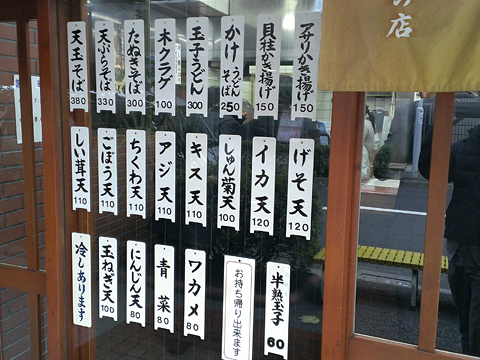 の店
アサリかき揚げ
150
貝柱かき揚げ
150
かけうどん
そば
250
玉子うどん
300
木クラゲ
100
たぬきそば
300
天ぷらそば
330
天玉そば
380
げそ天
120
イカ天
120
しゅん菊天
100
キス天
110
アジ天
110
ちくわ天
110
ごぼう天
110
しい茸天
110
半熟玉子
60
お持ち帰り出来ます
ワカメ
80
青菜
80
にんじん天
80
玉ねぎ天
100
冷しあります